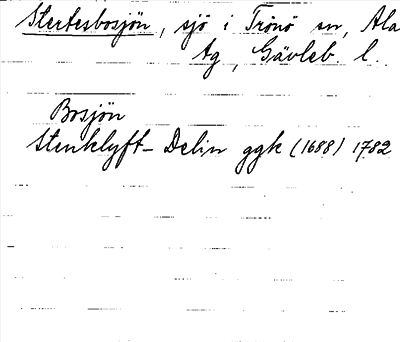 Stertesbosjön, sjö i Trönö sn, Ala
tg, Gävleb. l.
Bosjön
Stenklyft-Delin ggk (1688) 1782